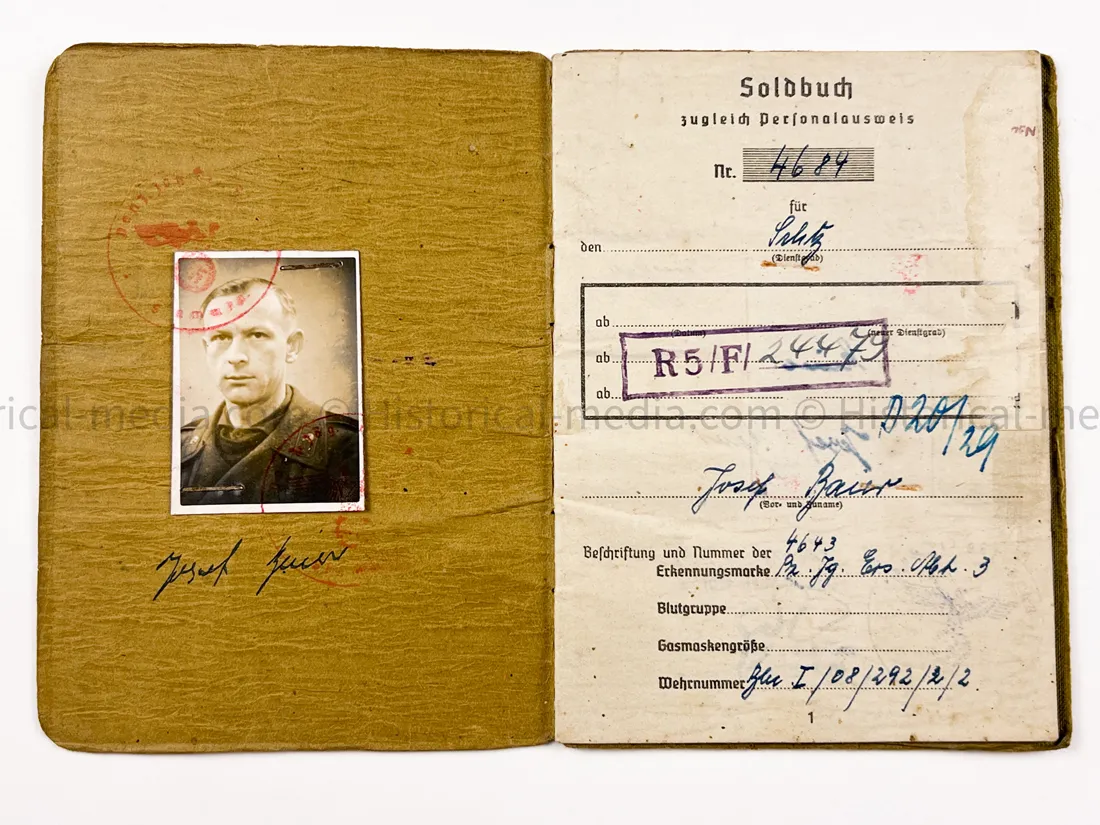 Josef Baier
Soldbuch
zugleich Personalausweis
Nr. 4684
für
den Schtz
(Dienstgrad)
ab
(Datum) (neuer Dienstgrad)
ab
R5/F/ 24479
ab
D20/29
Josef Baier
(Vor- und Zuname)
4643
Beschriftung und Nummer der
Erkennungsmarke Pz. Jg. Ers. Abt. 3
Blutgruppe
Gasmaskengröße
Wehrnummer I/08/292/2/2
1
Historical-media.com © Historical-media.com © Historical-me